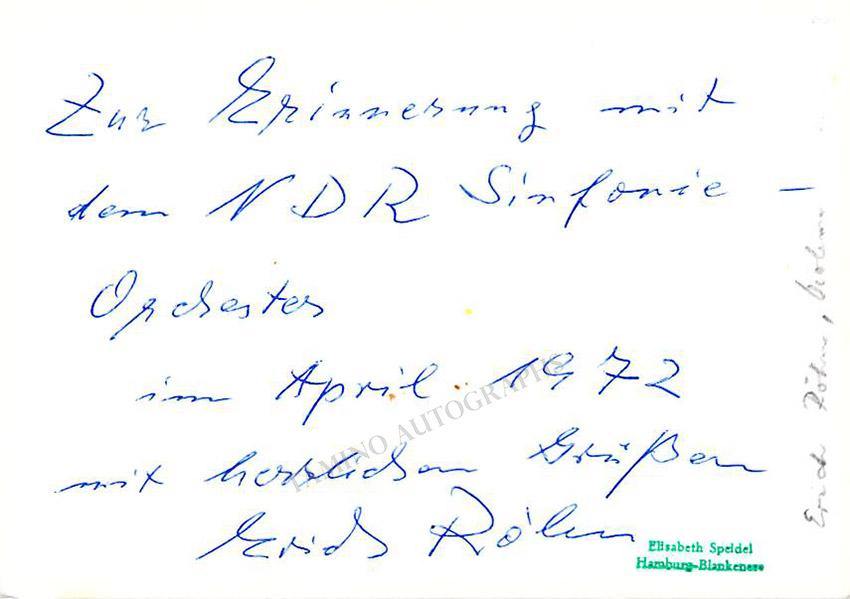 Zur Erinnerung mit
dem NDR Sinfonie -
Orchester
im April 1972
mit herzlichen Grüßen
Erich Röhn
TAMINO AUTOGRAPHS
Elisabeth Speidel
Hamburg-Blankenese
Erich Röhn,